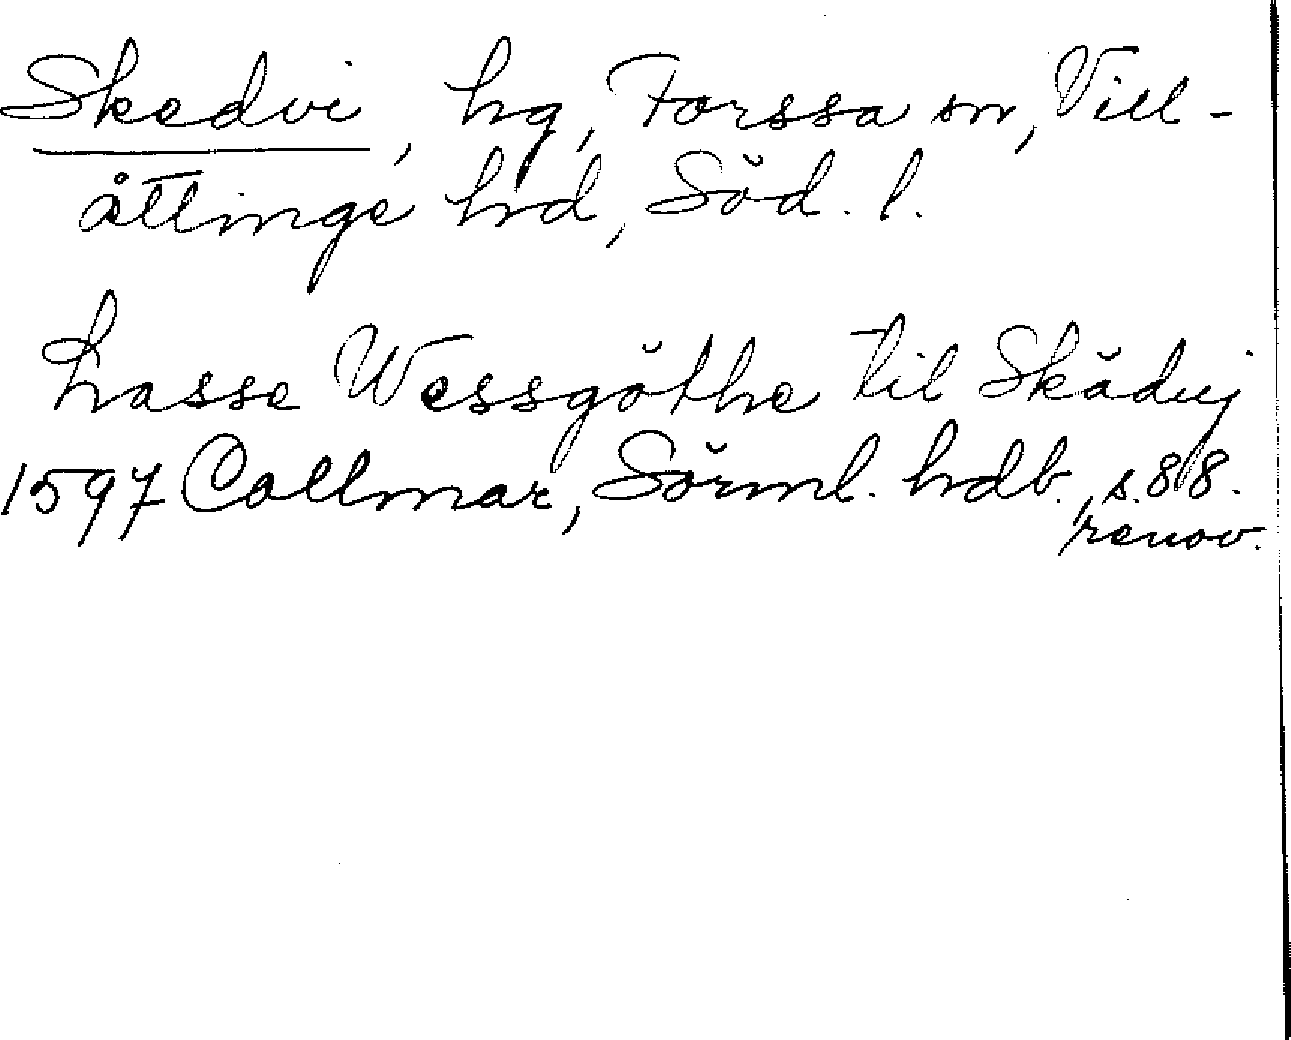 Skedvi, hg, Forssa sn, Vill-
åttinge hd, Söd. l.
Lasse Wessgöthe til Skädvij
1597 Collmar, Sörml. hdb., s. 88.
renov.